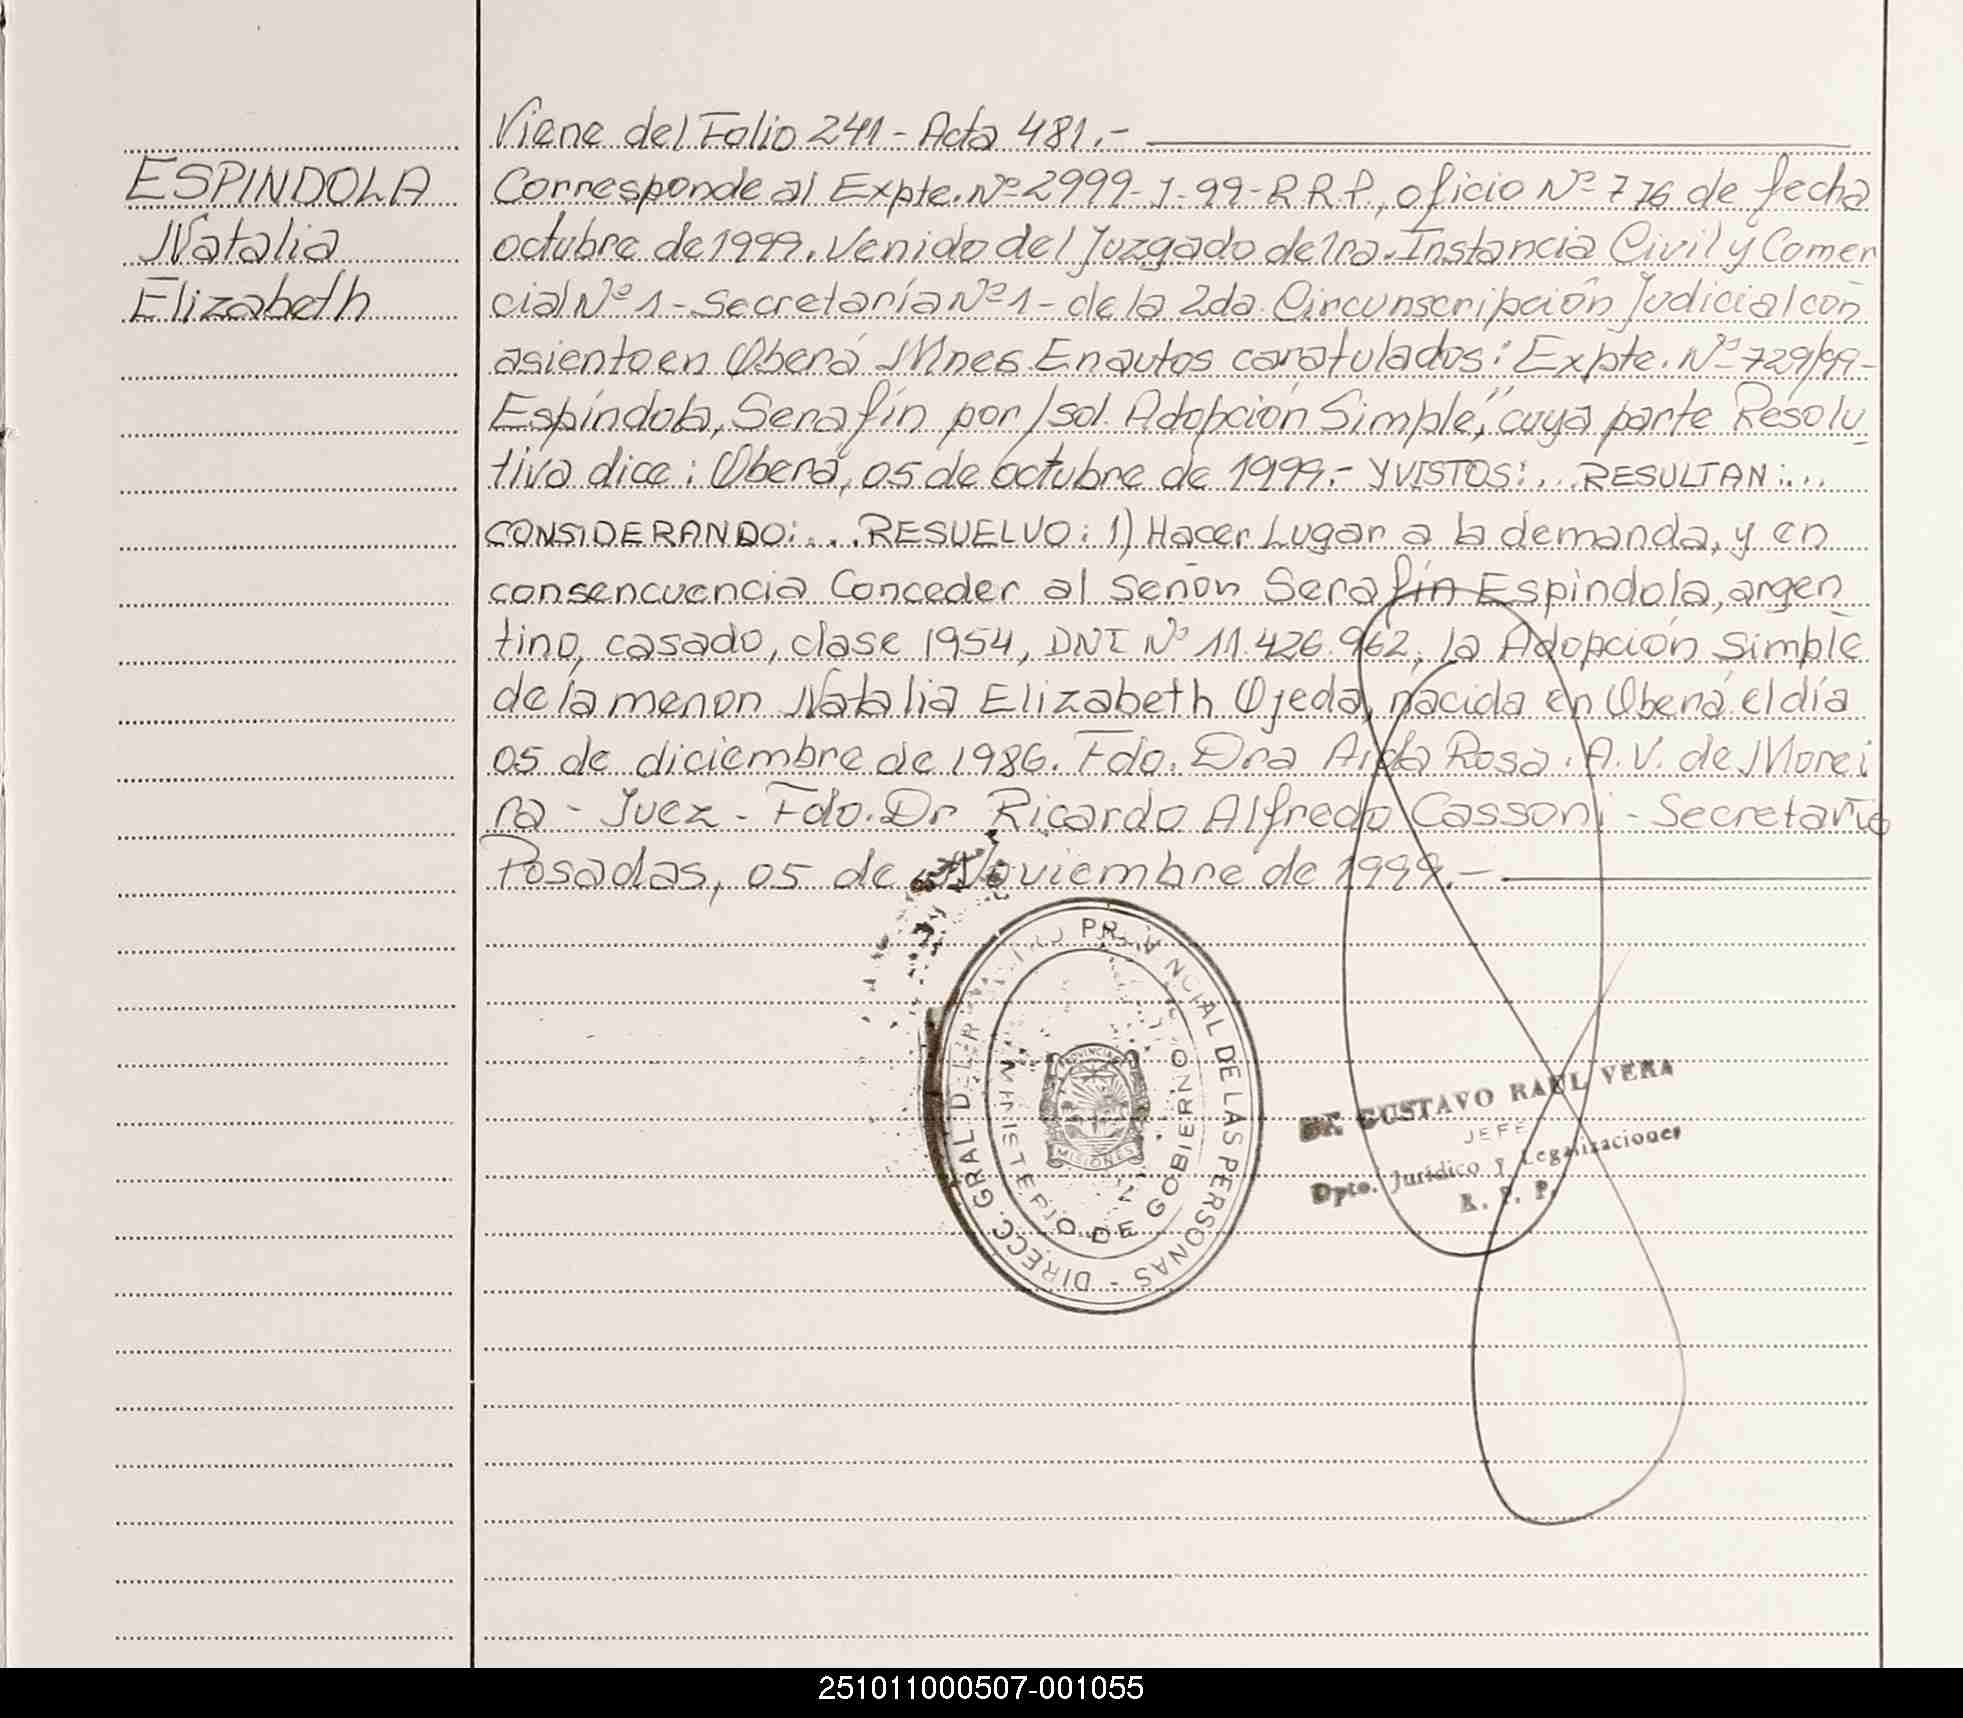 Viene del Folio 241 - Acta 481.-
ESPINDOLA
Natalia
Elizabeth
Corresponde al Expte. Nº 2999-J-99-R.R.P., oficio Nº 776 de fecha
octubre de 1999. Venido del Juzgado de 1ra. Instancia Civil y Comer
cial Nº 1 - Secretaría Nº 1 - de la 2da. Circunscripción Judicial con
asiento en Oberá Mnes. En autos caratulados: Expte. Nº 729/99-
Espíndola, Serafín por/sol. Adopción Simple," cuya parte Resolu
tiva dice: Oberá, 05 de octubre de 1999.- Y VISTOS:... RESULTAN:...
CONSIDERANDO:... RESUELVO: 1) Hacer Lugar a la demanda, y en
consencuencia Conceder al señor Serafín Espindola, argen
tino, casado, clase 1954, DNI Nº 11.426.962, la Adopción Simple
de la menor Natalia Elizabeth Ojeda, nacida en Oberá el día
05 de diciembre de 1986. Fdo. Dra Aida Rosa. A.V. de Morei
ra - Juez - Fdo. Dr Ricardo Alfredo Cassoni - Secretario
Posadas, 05 de Noviembre de 1999.-
DIRECC. GRAL DEL REGISTRO PROVINCIAL DE LAS PERSONAS -
MINISTERIO DE GOBIERNO
PROVINCIA
MISIONES
DR. GUSTAVO RAUL VERA
JEFE
Dpto. Jurídico y Legalizaciones
R. P. P.
251011000507-001055